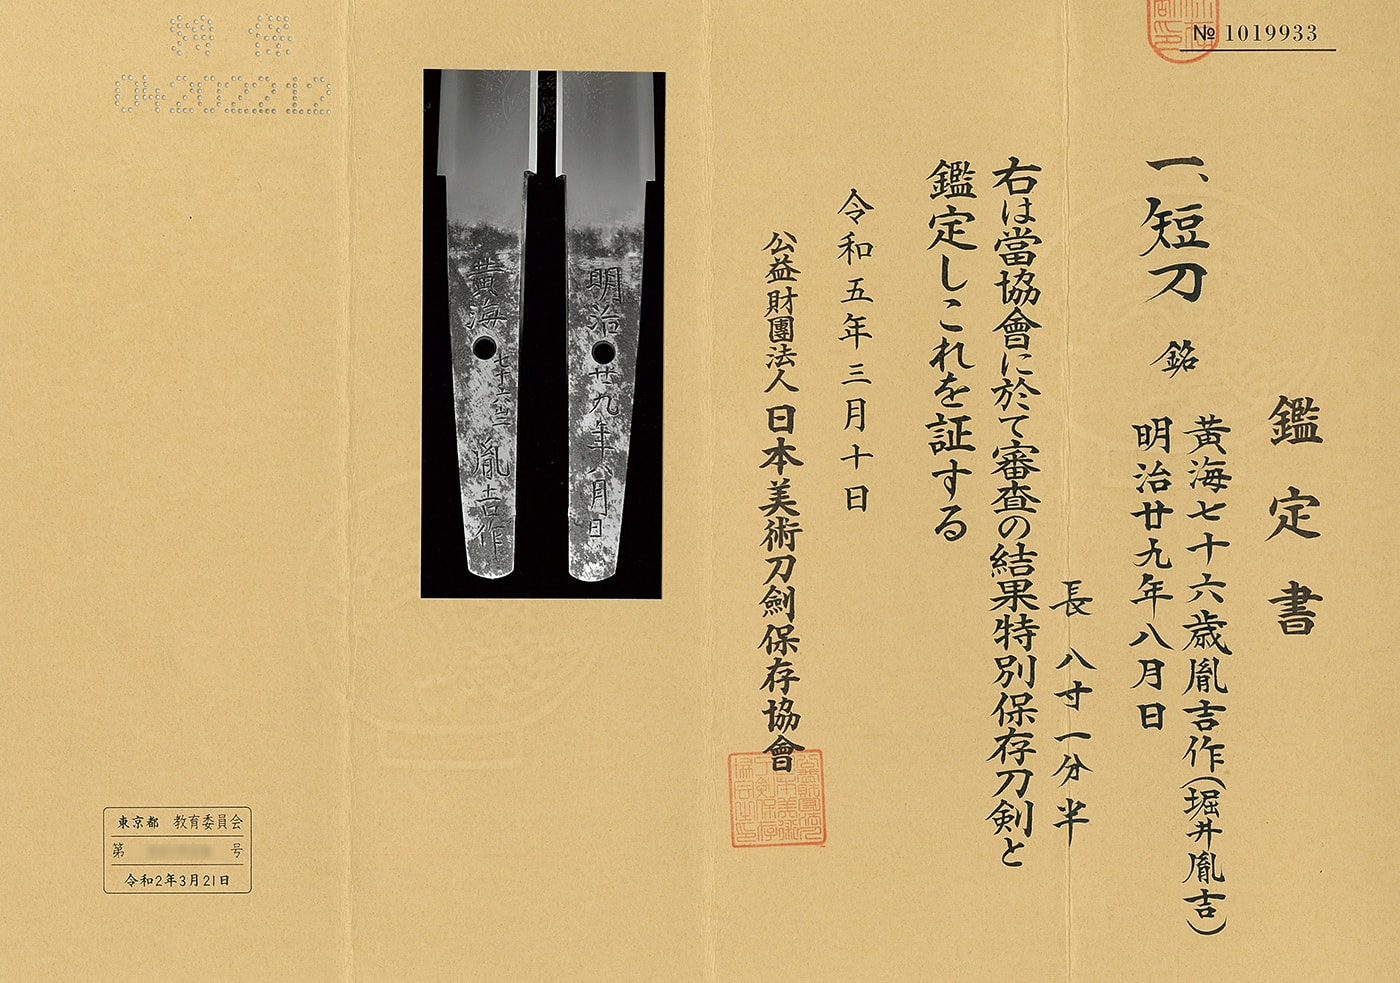 № 1019933
鑑定書
一、短刀 銘 黄海七十六歳胤吉作(堀井胤吉)
明治廿九年八月日
長 八寸一分半
右は當協會に於て審査の結果特別保存刀剣と
鑑定しこれを証する
令和五年三月十日
公益財團法人 日本美術刀劍保存協會
明治廿九年八月日
黄海七十六歳胤吉作
04202212
東京都 教育委員会
第 号
令和2年3月21日